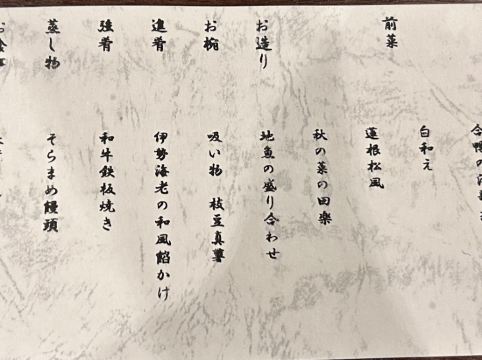 前菜
合鴨の
白和え
蓮根松風
秋の菜の田楽
お造り
地魚の盛り合わせ
お椀
吸い物 枝豆真薯
進肴
伊勢海老の和風餡かけ
強肴
和牛鉄板焼き
蒸し物
そらまめ饅頭
お食事